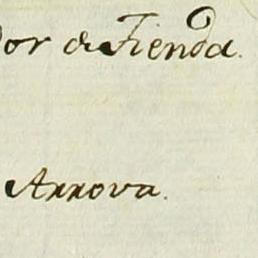 dor de Tienda.
Arrova.